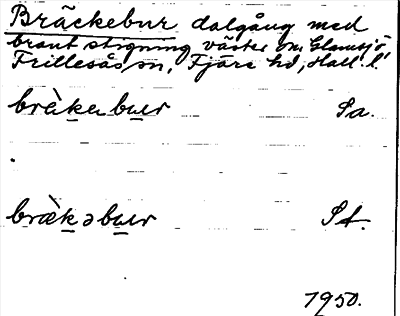 Bräckebur dalgång med
brant stigning väster om Glamsjö,
Frillesås sn, Fjäre hd, Hall. l.
brὰkabur Sa.
brὰkəbur St.
1950.